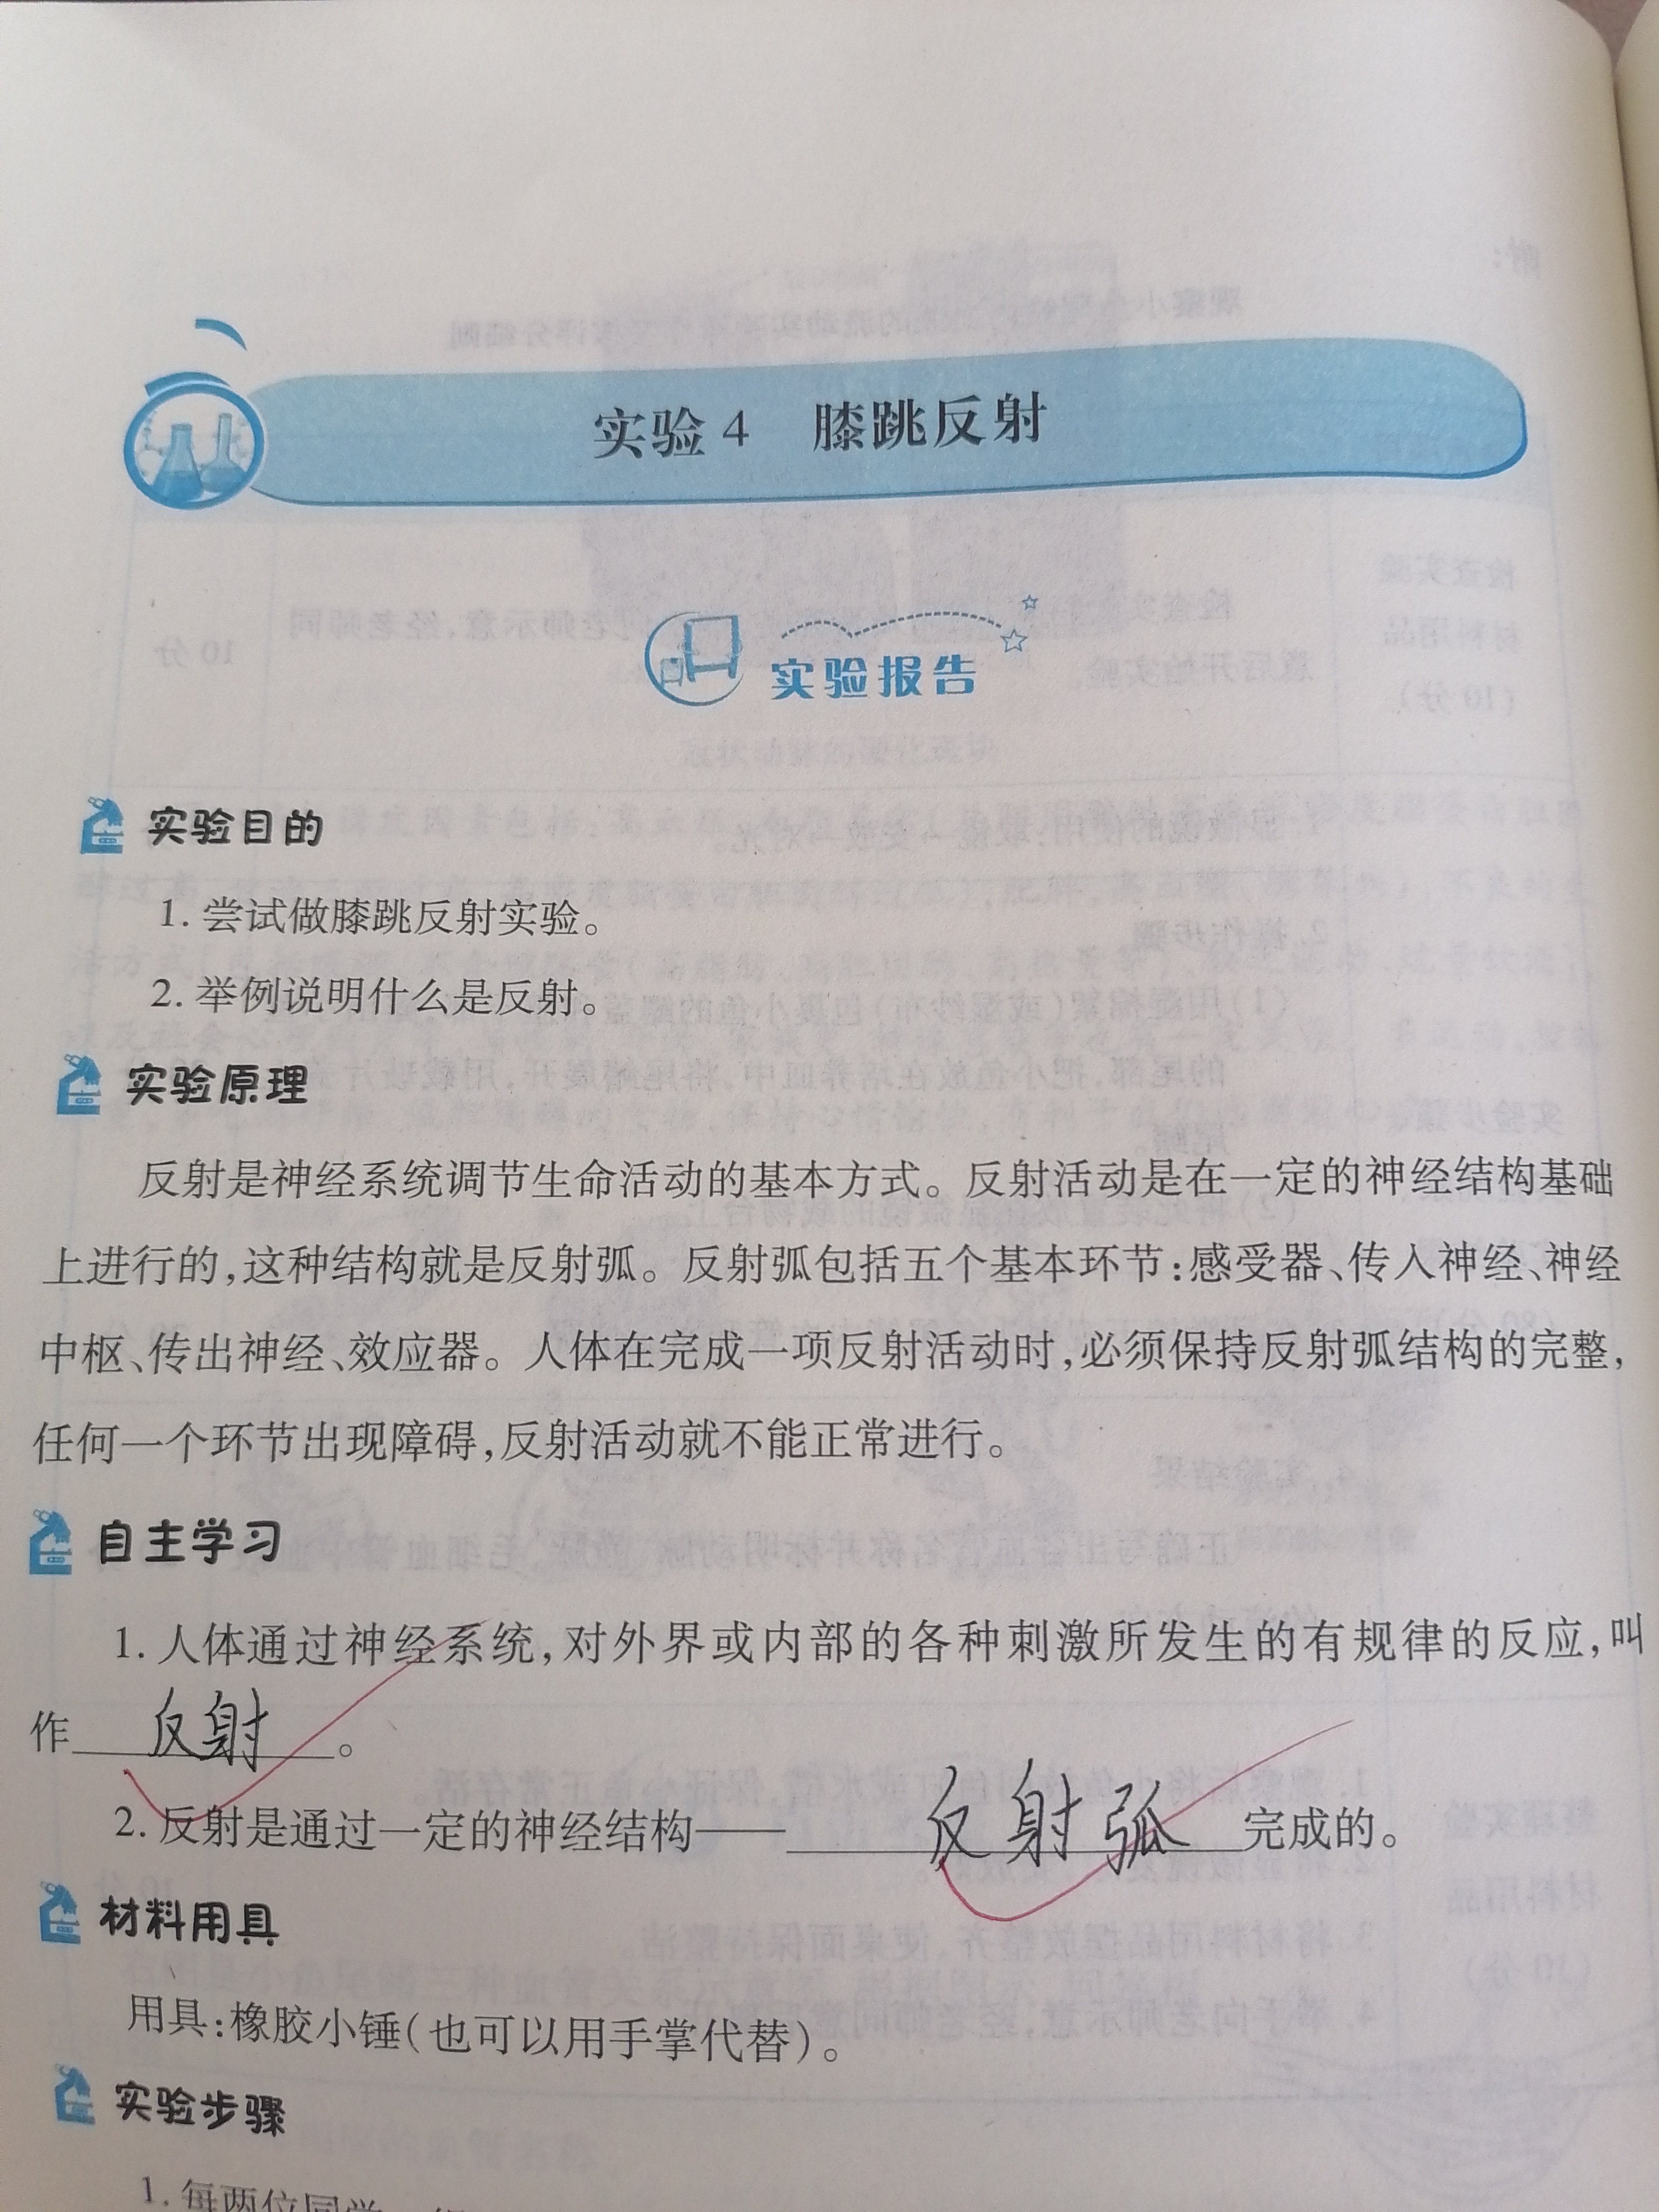 实验4 膝跳反射
实验报告
实验目的
1. 尝试做膝跳反射实验。
2. 举例说明什么是反射。
实验原理
反射是神经系统调节生命活动的基本方式。反射活动是在一定的神经结构基础
上进行的,这种结构就是反射弧。反射弧包括五个基本环节:感受器、传入神经、神经
中枢、传出神经、效应器。人体在完成一项反射活动时,必须保持反射弧结构的完整,
任何一个环节出现障碍,反射活动就不能正常进行。
自主学习
1. 人体通过神经系统,对外界或内部的各种刺激所发生的有规律的反应,叫
作 反射 。
2. 反射是通过一定的神经结构—— 反射弧 完成的。
材料用具
用具:橡胶小锤(也可以用手掌代替)。
实验步骤
1. 每两位同学